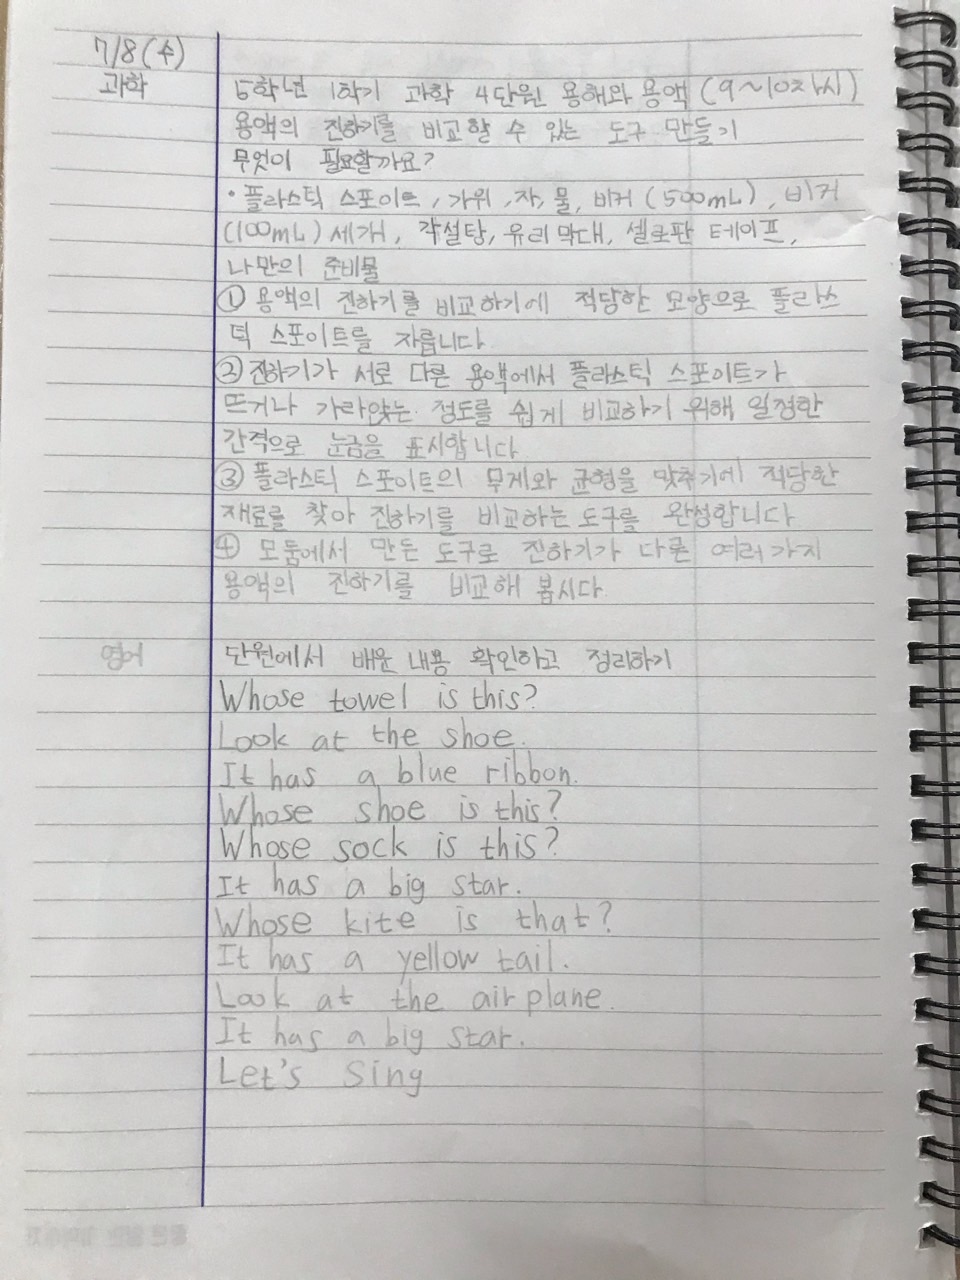 7/8(수)
과학
5학년 1학기 과학 4단원 용해와 용액 (9~10차시)
용액의 진하기를 비교할 수 있는 도구 만들기
무엇이 필요할까요?
• 플라스틱 스포이트, 가위, 자, 물, 비커(500mL), 비커
(100mL) 세개, 각설탕, 유리 막대, 셀로판 테이프,
나만의 준비물
① 용액의 진하기를 비교하기에 적당한 모양으로 플라스
틱 스포이트를 자릅니다
② 진하기가 서로 다른 용액에서 플라스틱 스포이트가
뜨거나 가라앉는 정도를 쉽게 비교하기 위해 일정한
간격으로 눈금을 표시합니다
③ 플라스틱 스포이트의 무게와 균형을 맞추기에 적당한
재료를 찾아 진하기를 비교하는 도구를 완성합니다
④ 모둠에서 만든 도구로 진하기가 다른 여러 가지
용액의 진하기를 비교해 봅시다.
영어
단원에서 배운 내용 확인하고 정리하기
Whose towel is this?
Look at the shoe.
It has a blue ribbon.
Whose shoe is this?
Whose sock is this?
It has a big star.
Whose kite is that?
It has a yellow tail.
Look at the airplane.
It has a big star.
Let's Sing